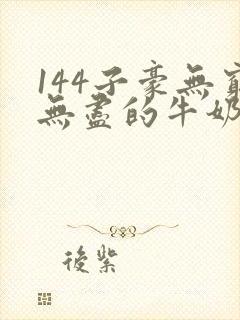 144子豪無窮
無盡的牛奶
後紫